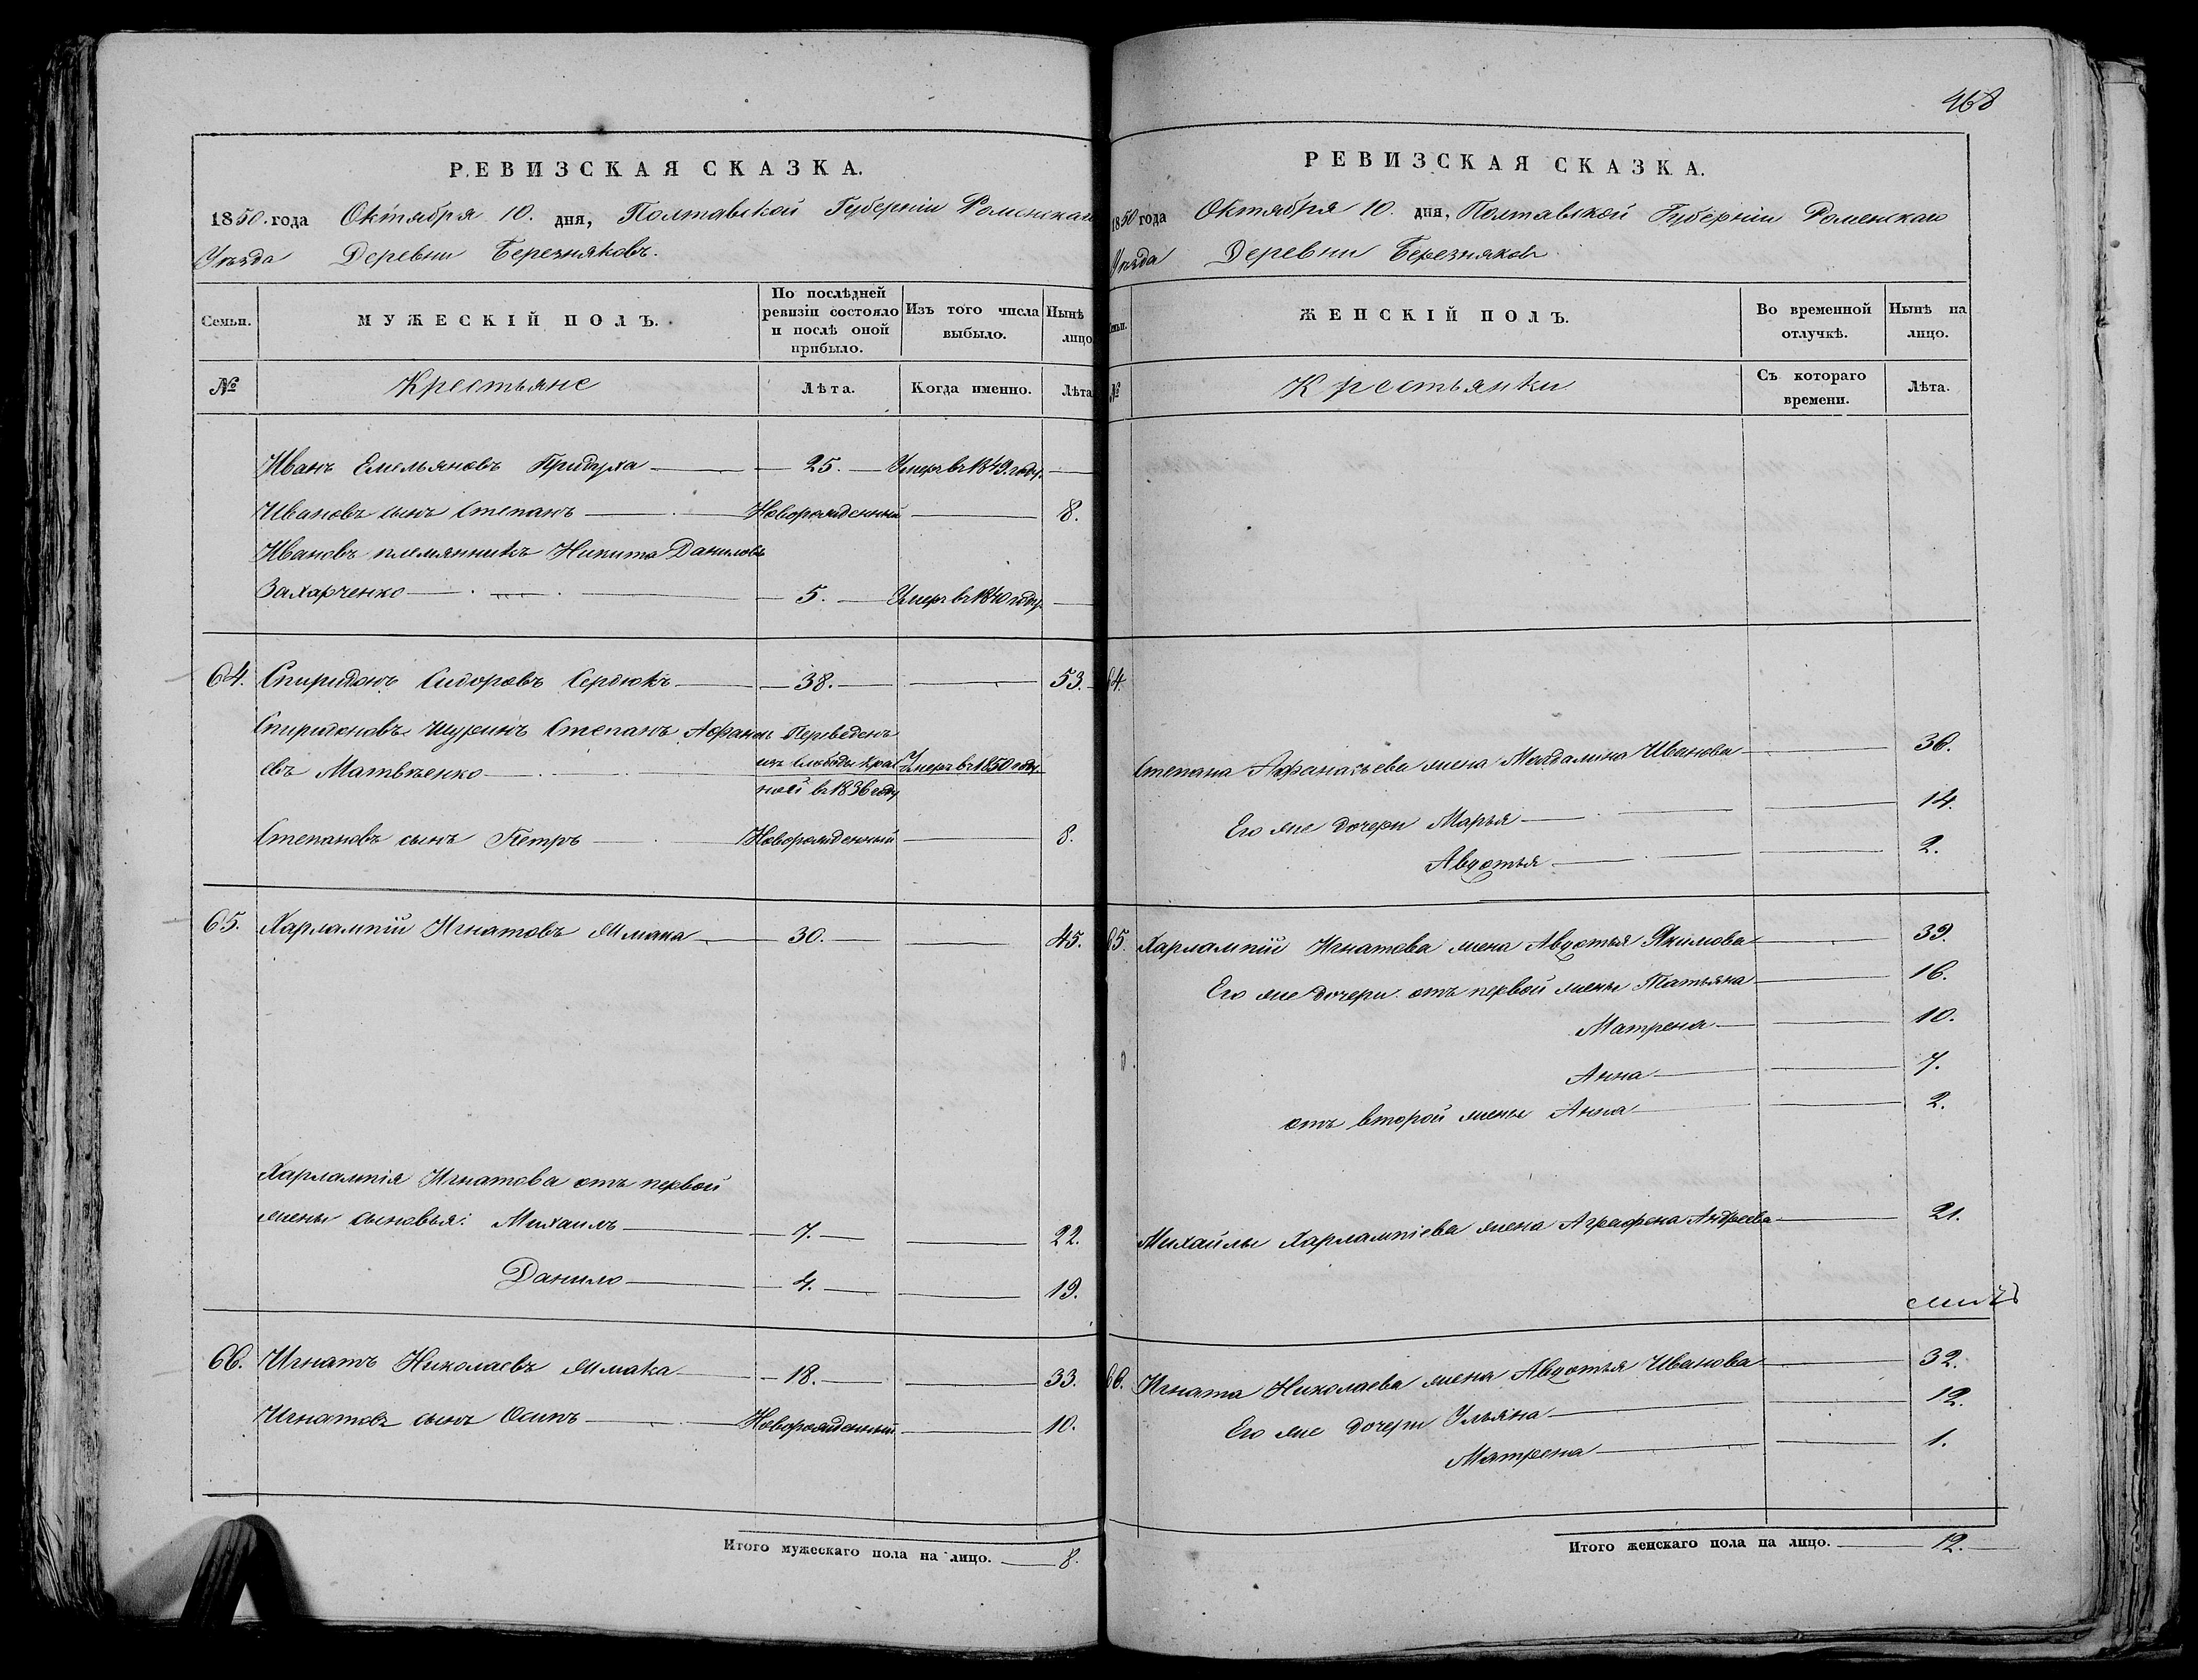 РЕВИЗСКАЯ СКАЗКА.
1850. года Октября 10. дня, Полтавской Губерніи Роменскаго
Уѣзда Деревни Березняковъ.
Семьи.
МУЖЕСКІЙ ПОЛЪ.
По послѣдней ревизіи состояло и послѣ оной прибыло.
Изъ того числа выбыло.
Нынѣ лицо
№ Крестьяне Лѣта. Когда именно. Лѣта
Иванъ Емельяновъ Придуха 25. Умеръ въ 1849. году.
Ивановъ сынъ Степанъ Новорожденный 8.
Ивановъ племянникъ Никита Даниловъ
Захарченко 5. Умеръ въ 1840 году.
64. Спиридонъ Сидоровъ Сердюкъ 38. 53.
Спиридоновъ шуринъ Степанъ Афанась Переведенъ
евъ Матвѣенко изъ слободы Крас Умеръ въ 1850 году.
ной въ 1836 году
Степановъ сынъ Петръ Новорожденный 8.
65. Харлампій Игнатовъ Жмака 30. 45.
Харлампія Игнатова отъ первой
жены сыновья: Михаилъ 7. 22.
Данило 4. 19.
66. Игнатъ Николаевъ Жмака 18. 33.
Игнатовъ сынъ Осипъ Новорожденный 10.
Итого мужескаго пола на лицо. 8.
468
РЕВИЗСКАЯ СКАЗКА.
1850 года Октября 10. дня, Полтавской Губерніи Роменскаго
Уѣзда Деревни Березняковъ.
ЖЕНСКІЙ ПОЛЪ.
Во временной отлучкѣ.
Нынѣ на лицо.
№ Крестьянки Съ котораго времени. Лѣта.
64.
Степана Афанасьева жена Магдалина Иванова 36.
Его же дочери Марья 14.
Авдотья 2.
65. Харлампія Игнатова жена Авдотья Якимова 39.
Его же дочери отъ первой жены Татьяна 16.
Матрена 10.
Анна 7.
отъ второй жены Анна 2.
Михайлы Харлампіева жена Аграфена Андреева 21.
66. Игната Николаева жена Авдотья Иванова 32.
Его же дочери Ульяна 12.
Матрена 1.
Итого женскаго пола на лицо. 12.